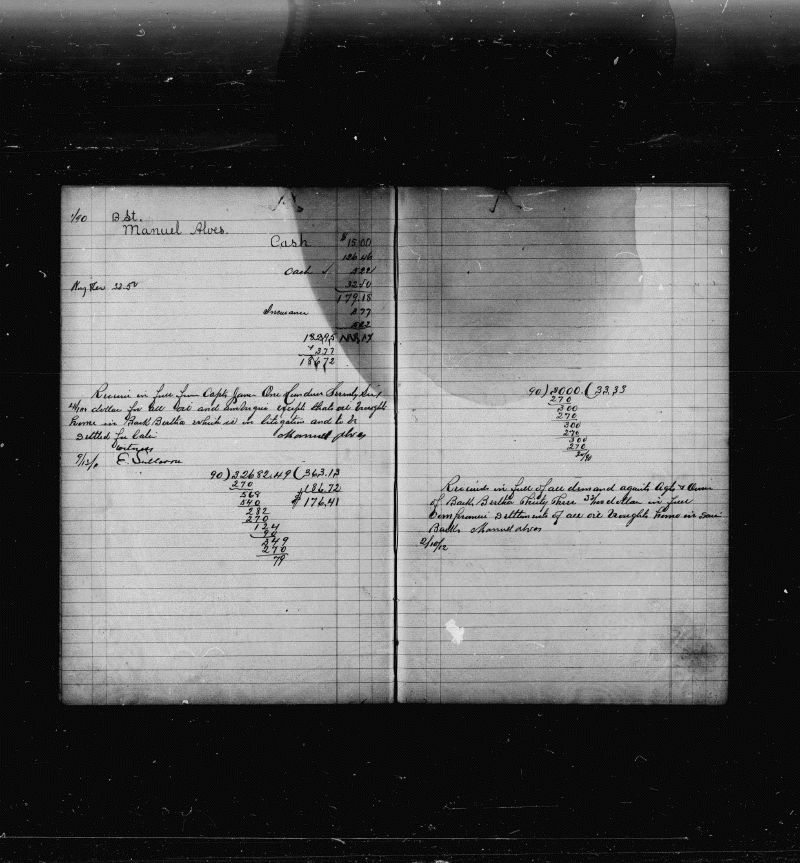 1/90 B St.
Manuel Alves.
Cash $15.00
126.06
Cash √ 5.22
Aug 32.50 32.50
179.18
Insurance 3.77
18295
377
18672
Receive in full from Capt One Hundred Seventy Six
dollar for all oil and ambergris except that oil brought
home in Bark Bertha which is in litigation and to be
settled for later Manuel Alves
witness
9/13/ E.
90)32682.49(363.13
270 186.72
568 $176.41
540
282
270
124
90
349
270
79
90)3000.(33.33
270
300
270
300
270
300
270
30/90
Received in full of all demand against Agts & Owner
of Bark Bertha Thirty Three 33/100 dollar in full
Compromise Settlement of all oil brought home in said
Bark. Manuel Alves
2/10/12